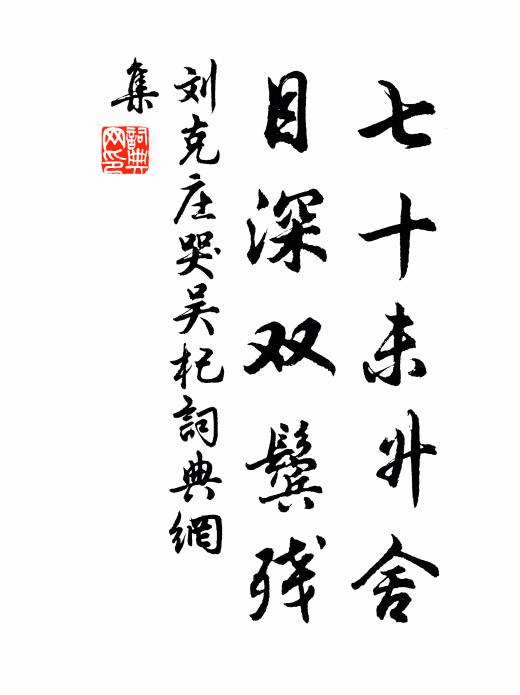 七十未升舍
目深双鬓残
刘克庄哭吴杞詞典網
集
詞典網印